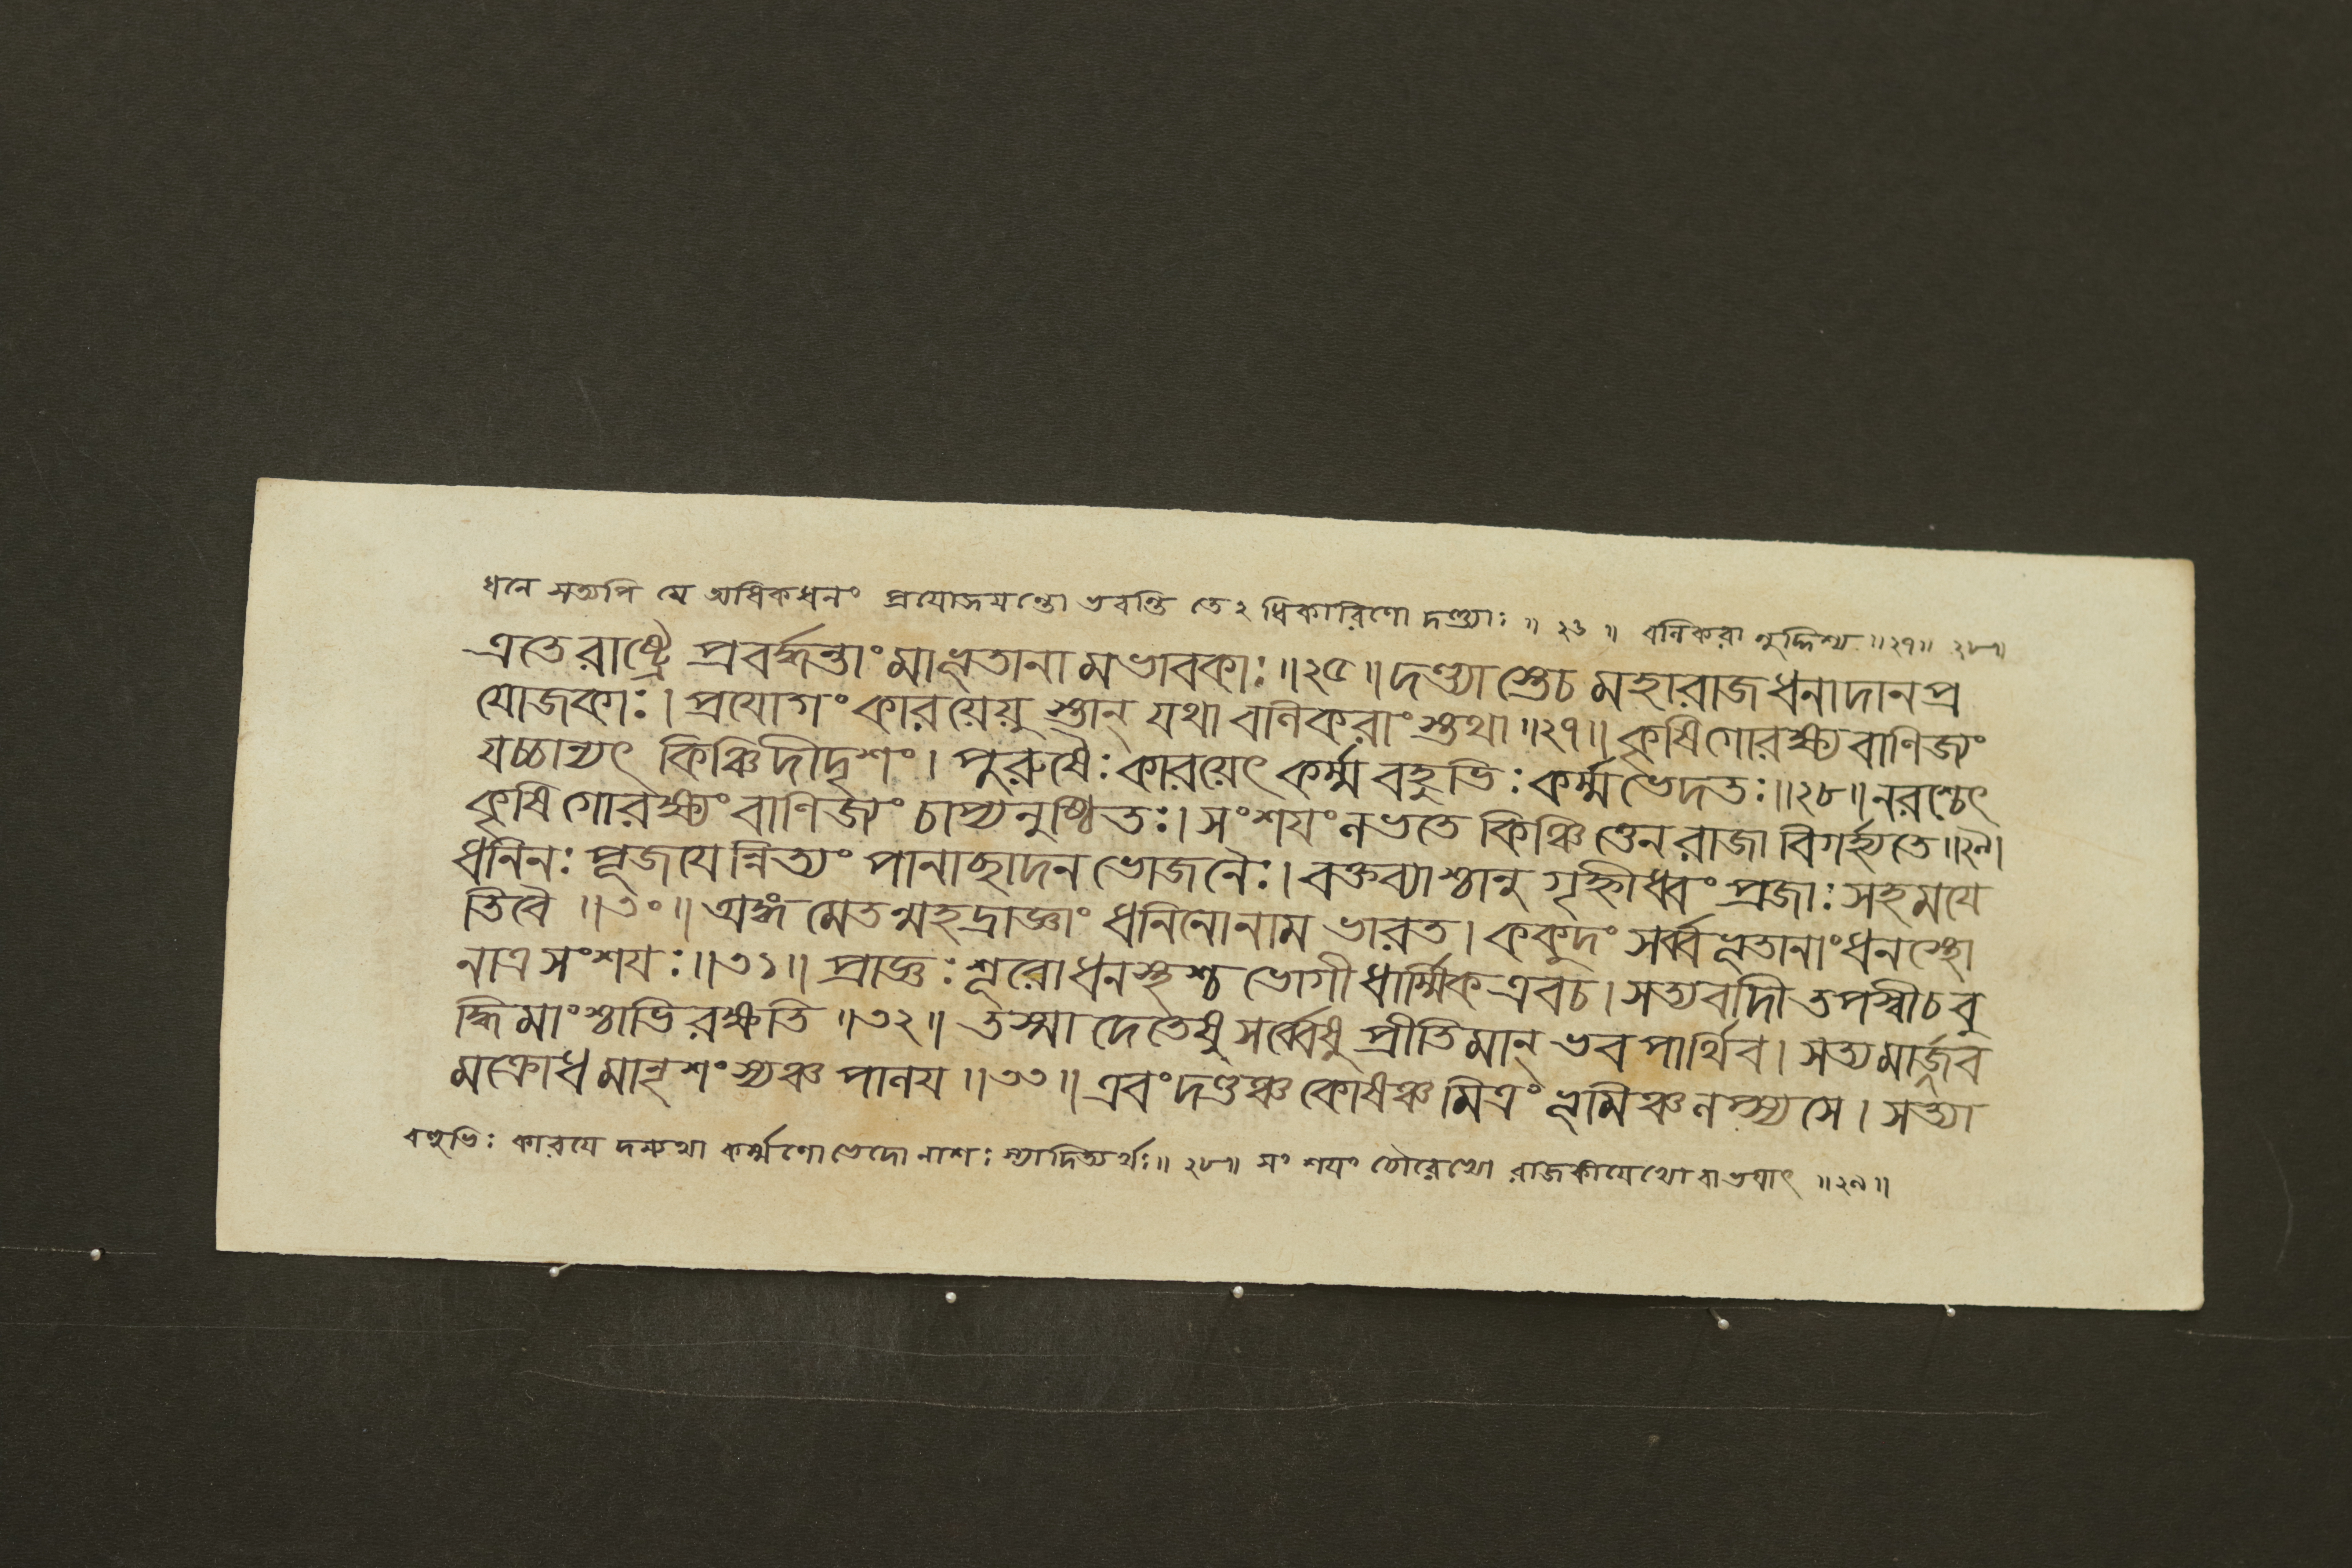 ধনে সত্যপি যে অধিকধনং প্রযোজযন্তো ভবন্তি তেঽ ধিকারিণো দণ্ড্যাঃ ॥ ২৬ ॥ বনিকরা নুদ্দিশ্য ॥২৭॥ ২৮॥
এতে রাষ্ট্রে প্রবর্দ্ধন্তাং মা ভূতানা মভাবকাঃ ॥২৫॥ দণ্ড্যা স্তেচ মহারাজ ধনাদান প্র
যোজকাঃ। প্রযোগং কারয়েয়ু স্তান্ যথা বনিকরাং স্তথা ॥২৭॥ কৃষি গোরক্ষ্য বাণিজ্যং
যচ্চান্যৎ কিঞ্চিদীদৃশং। পুরুষৈঃ কারয়েৎ কর্ম্ম বহুভিঃ কর্ম্ম ভেদতঃ ॥২৮॥ নরশ্চেৎ
কৃষি গোরক্ষ্যং বাণিজ্যং চাপ্যনুষ্ঠিতঃ। সংশযং লভতে কিঞ্চি ত্তেন রাজা বিগর্হ্যতে ॥২৯॥
ধনিনঃ পূজযে ন্নিত্যং পানাছাদন ভোজনৈঃ। বক্তব্যাশ্চানু গৃহ্ণীধ্বং প্রজাঃ সহ ময়ে
তিবৈ ॥৩০॥ অঙ্গ মেতন্মহদ্রাজ্ঞাং ধনিনো নাম ভারত। ককুদং সর্ব্ব ভূতানাং ধনস্থো
নাত্র সংশযঃ ॥৩১॥ প্রাজ্ঞঃ শূরো ধনস্থশ্চ ভোগী ধার্ম্মিক এবচ। সত্যবাদী তপস্বীচ বু
দ্ধিমাংশ্চাভি রক্ষতি ॥৩২॥ তস্মা দেতেষু সর্ব্বেষু প্রীতিমান্ ভব পার্থিব। সত্য মার্জ্জব
মক্রোধ মানৃশংস্যঞ্চ পালয ॥৩৩॥ এবং দণ্ডঞ্চ কোষঞ্চ মিত্রং ভূমিঞ্চ লপ্স্যসে। সত্যা
বহুভিঃ কারযে দন্যথা কর্ম্মণো ভেদো নাশঃ স্যাদিত্যর্থঃ॥ ২৮॥ সং শযং চৌরেভ্যো রাজকীযেভ্যো বা ভযাৎ ॥২৯॥